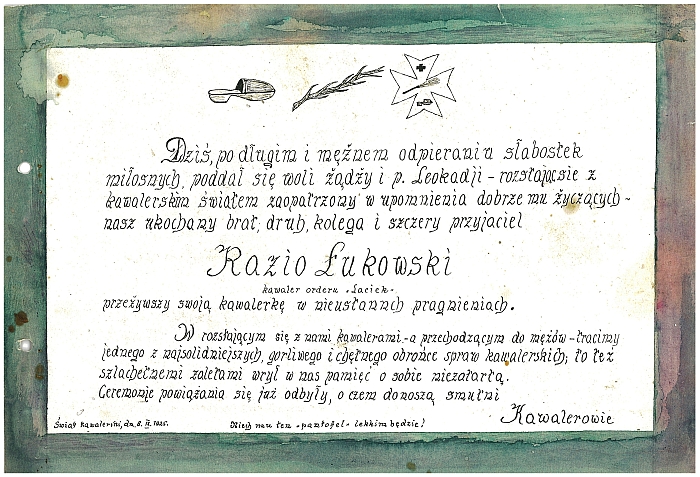 Dziś, po długim i mężnem odpieraniu słabostek
miłosnych, poddał się woli żądży i p. Leokadji - rozstając sie z
kawalerskim światem zaopatrzony w upomnienia dobrze mu życzących -
nasz ukochany brat, druh, kolega i szczery przyjaciel
Kazio Łukowski
kawaler orderu "Laciek"
przeżywszy swoją kawalerkę w nieustannych pragnieniach.
W rozstającym się z nami kawalerami - a przechodzącym do mężów - tracimy
jednego z najsolidniejszych, gorliwego i chętnego obrońcę spraw kawalerskich; to też
szlachetnemi zaletami wrył w nas pamięć o sobie niezatartą.
Ceremonje powiązania się już odbyły, o czem donoszą smutni
Kawalerowie
Świat Kawalerski, dn. 8. II. 1925.
Niech mu ten "pantofel" lekkim będzie!